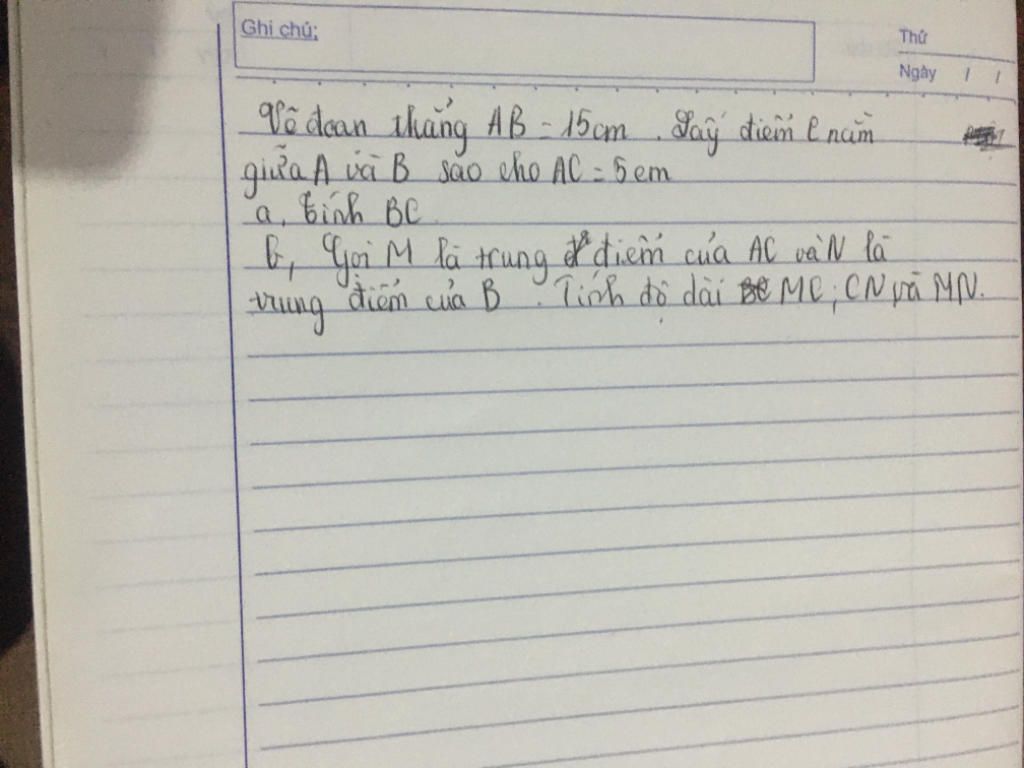 Ghi chú:
Thứ
Ngày / /
Vẽ đoan thẳng AB = 15cm . Lấy điểm C nằm
giữa A và B sao cho AC = 5cm
a, tính BC
b, Gọi M là trung điểm của AC và N là
trung điểm của B . Tính độ dài MC, CN và MN.